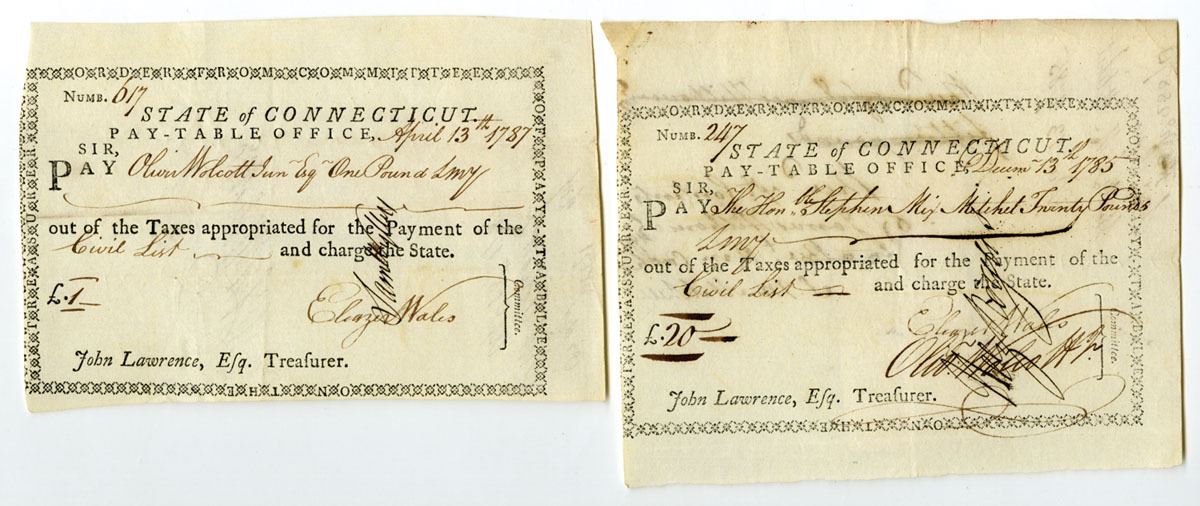 ORDER FROM COMMITTEE OF PAY-TABLE ON THE TREASURER
NUMB. 617
STATE of CONNECTICUT.
PAY-TABLE OFFICE, April 13th 1787
SIR,
PAY Oliver Wolcott Junr Esqr One Pound Lmy
out of the Taxes appropriated for the Payment of the
Civil List and charge the State.
£.1
Eleazer Wales
Committee.
John Lawrence, Eſq. Treaſurer.
ORDER FROM COMMITTEE OF PAY-TABLE ON THE TREASURER
NUMB. 247
STATE of CONNECTICUT.
PAY-TABLE OFFICE, Decemr 13th 1785
SIR,
PAY The Honble Stephen Mix Mitchel Twenty Pounds
Lmy
out of the Taxes appropriated for the Payment of the
Civil List and charge the State.
£.20
Eleazer Wales
Committee.
John Lawrence, Eſq. Treaſurer.